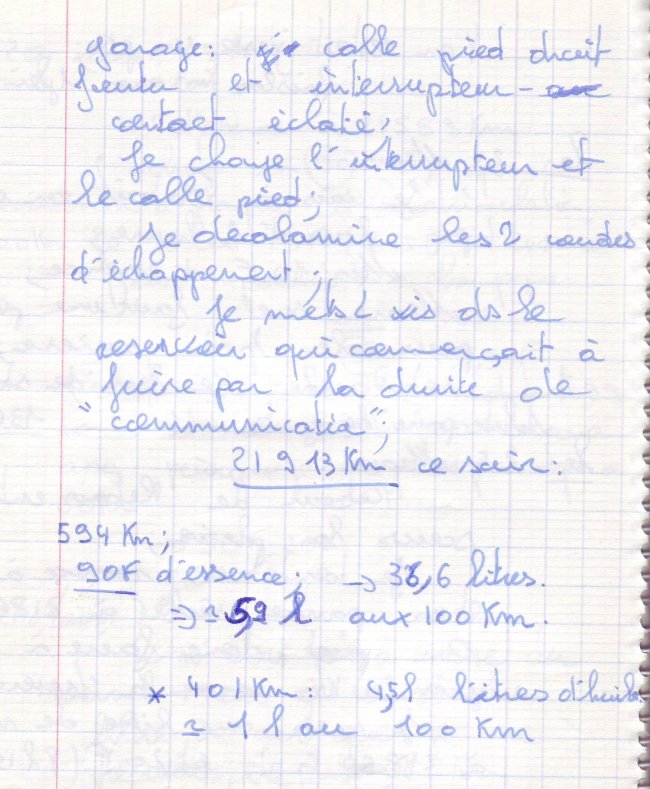 garage: calle pied droit
fendu et interrupteur-
contact éclaté,
Je change l'interrupteur et
le calle pied;
Je décalamine les 2 coudes
d'échappement;
Je mets 2 vis ds le
reservoir qui commerçait à
fuire par la durite de
"communicatia";
21913 Km ce soir:
594 Km;
90F d'essence; → 36,6 litres.
⇒ ≃ 5,9 l aux 100 Km.
* 401 Km: litres d'huile
≃ 1 l au 100 Km